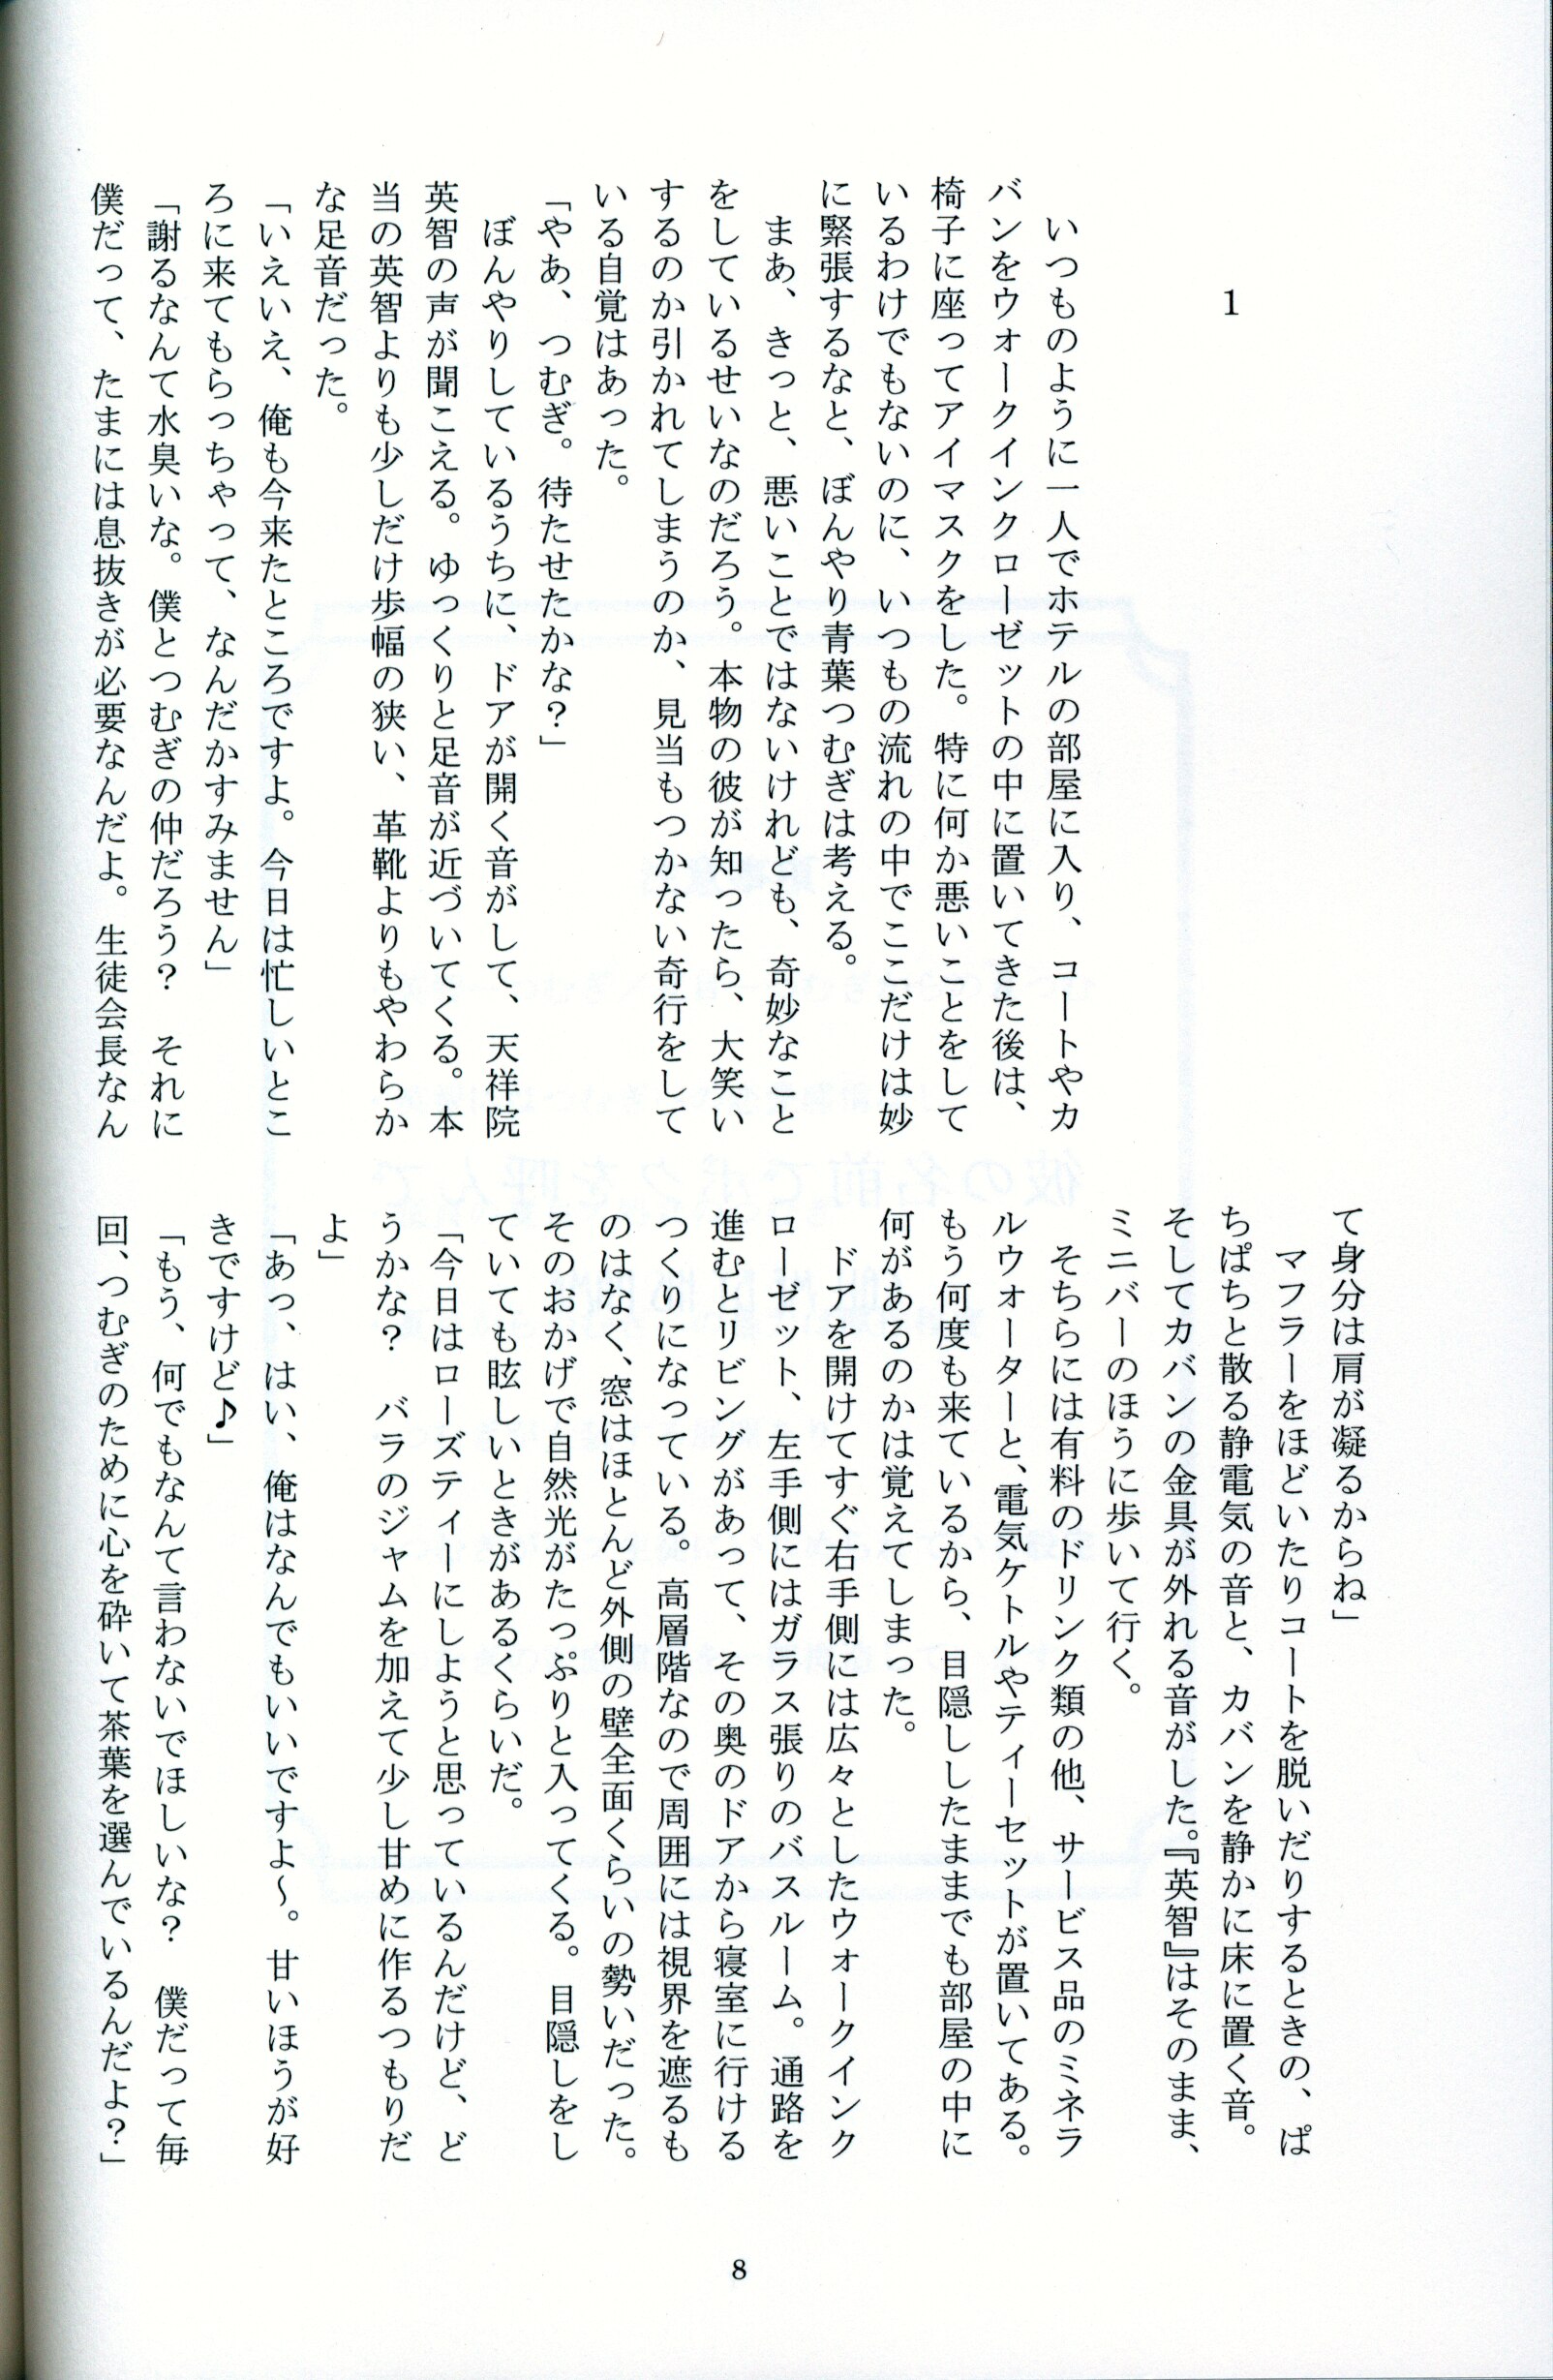 1
いつものように一人でホテルの部屋に入り、コートやカ
バンをウォークインクローゼットの中に置いてきた後は、
椅子に座ってアイマスクをした。特に何か悪いことをして
いるわけでもないのに、いつもの流れの中でここだけは妙
に緊張するなと、ぼんやり青葉つむぎは考える。
まあ、きっと、悪いことではないけれども、奇妙なこと
をしているせいなのだろう。本物の彼が知ったら、大笑い
するのか引かれてしまうのか、見当もつかない奇行をして
いる自覚はあった。
「やあ、つむぎ。待たせたかな？」
ぼんやりしているうちに、ドアが開く音がして、天祥院
英智の声が聞こえる。ゆっくりと足音が近づいてくる。本
当の英智よりも少しだけ歩幅の狭い、革靴よりもやわらか
な足音だった。
「いえいえ、俺も今来たところですよ。今日は忙しいとこ
ろに来てもらっちゃって、なんだかすみません」
「謝るなんて水臭いな。僕とつむぎの仲だろう？　それに
僕だって、たまには息抜きが必要なんだよ。生徒会長なん
て身分は肩が凝るからね」
マフラーをほどいたりコートを脱いだりするときの、ぱ
ちぱちと散る静電気の音と、カバンを静かに床に置く音。
そしてカバンの金具が外れる音がした。『英智』はそのまま、
ミニバーのほうに歩いて行く。
そちらには有料のドリンク類の他、サービス品のミネラ
ルウォーターと、電気ケトルやティーセットが置いてある。
もう何度も来ているから、目隠ししたままでも部屋の中に
何があるのかは覚えてしまった。
ドアを開けてすぐ右手側には広々としたウォークインク
ローゼット、左手側にはガラス張りのバスルーム。通路を
進むとリビングがあって、その奥のドアから寝室に行ける
つくりになっている。高層階なので周囲には視界を遮るも
のはなく、窓はほとんど外側の壁全面くらいの勢いだった。
そのおかげで自然光がたっぷりと入ってくる。目隠しをし
ていても眩しいときがあるくらいだ。
「今日はローズティーにしようと思っているんだけど、ど
うかな？　バラのジャムを加えて少し甘めに作るつもりだ
よ」
「あっ、はい、俺はなんでもいいですよ～。甘いほうが好
きですけど♪」
「もう、何でもなんて言わないでほしいな？　僕だって毎
回、つむぎのために心を砕いて茶葉を選んでいるんだよ？」
8